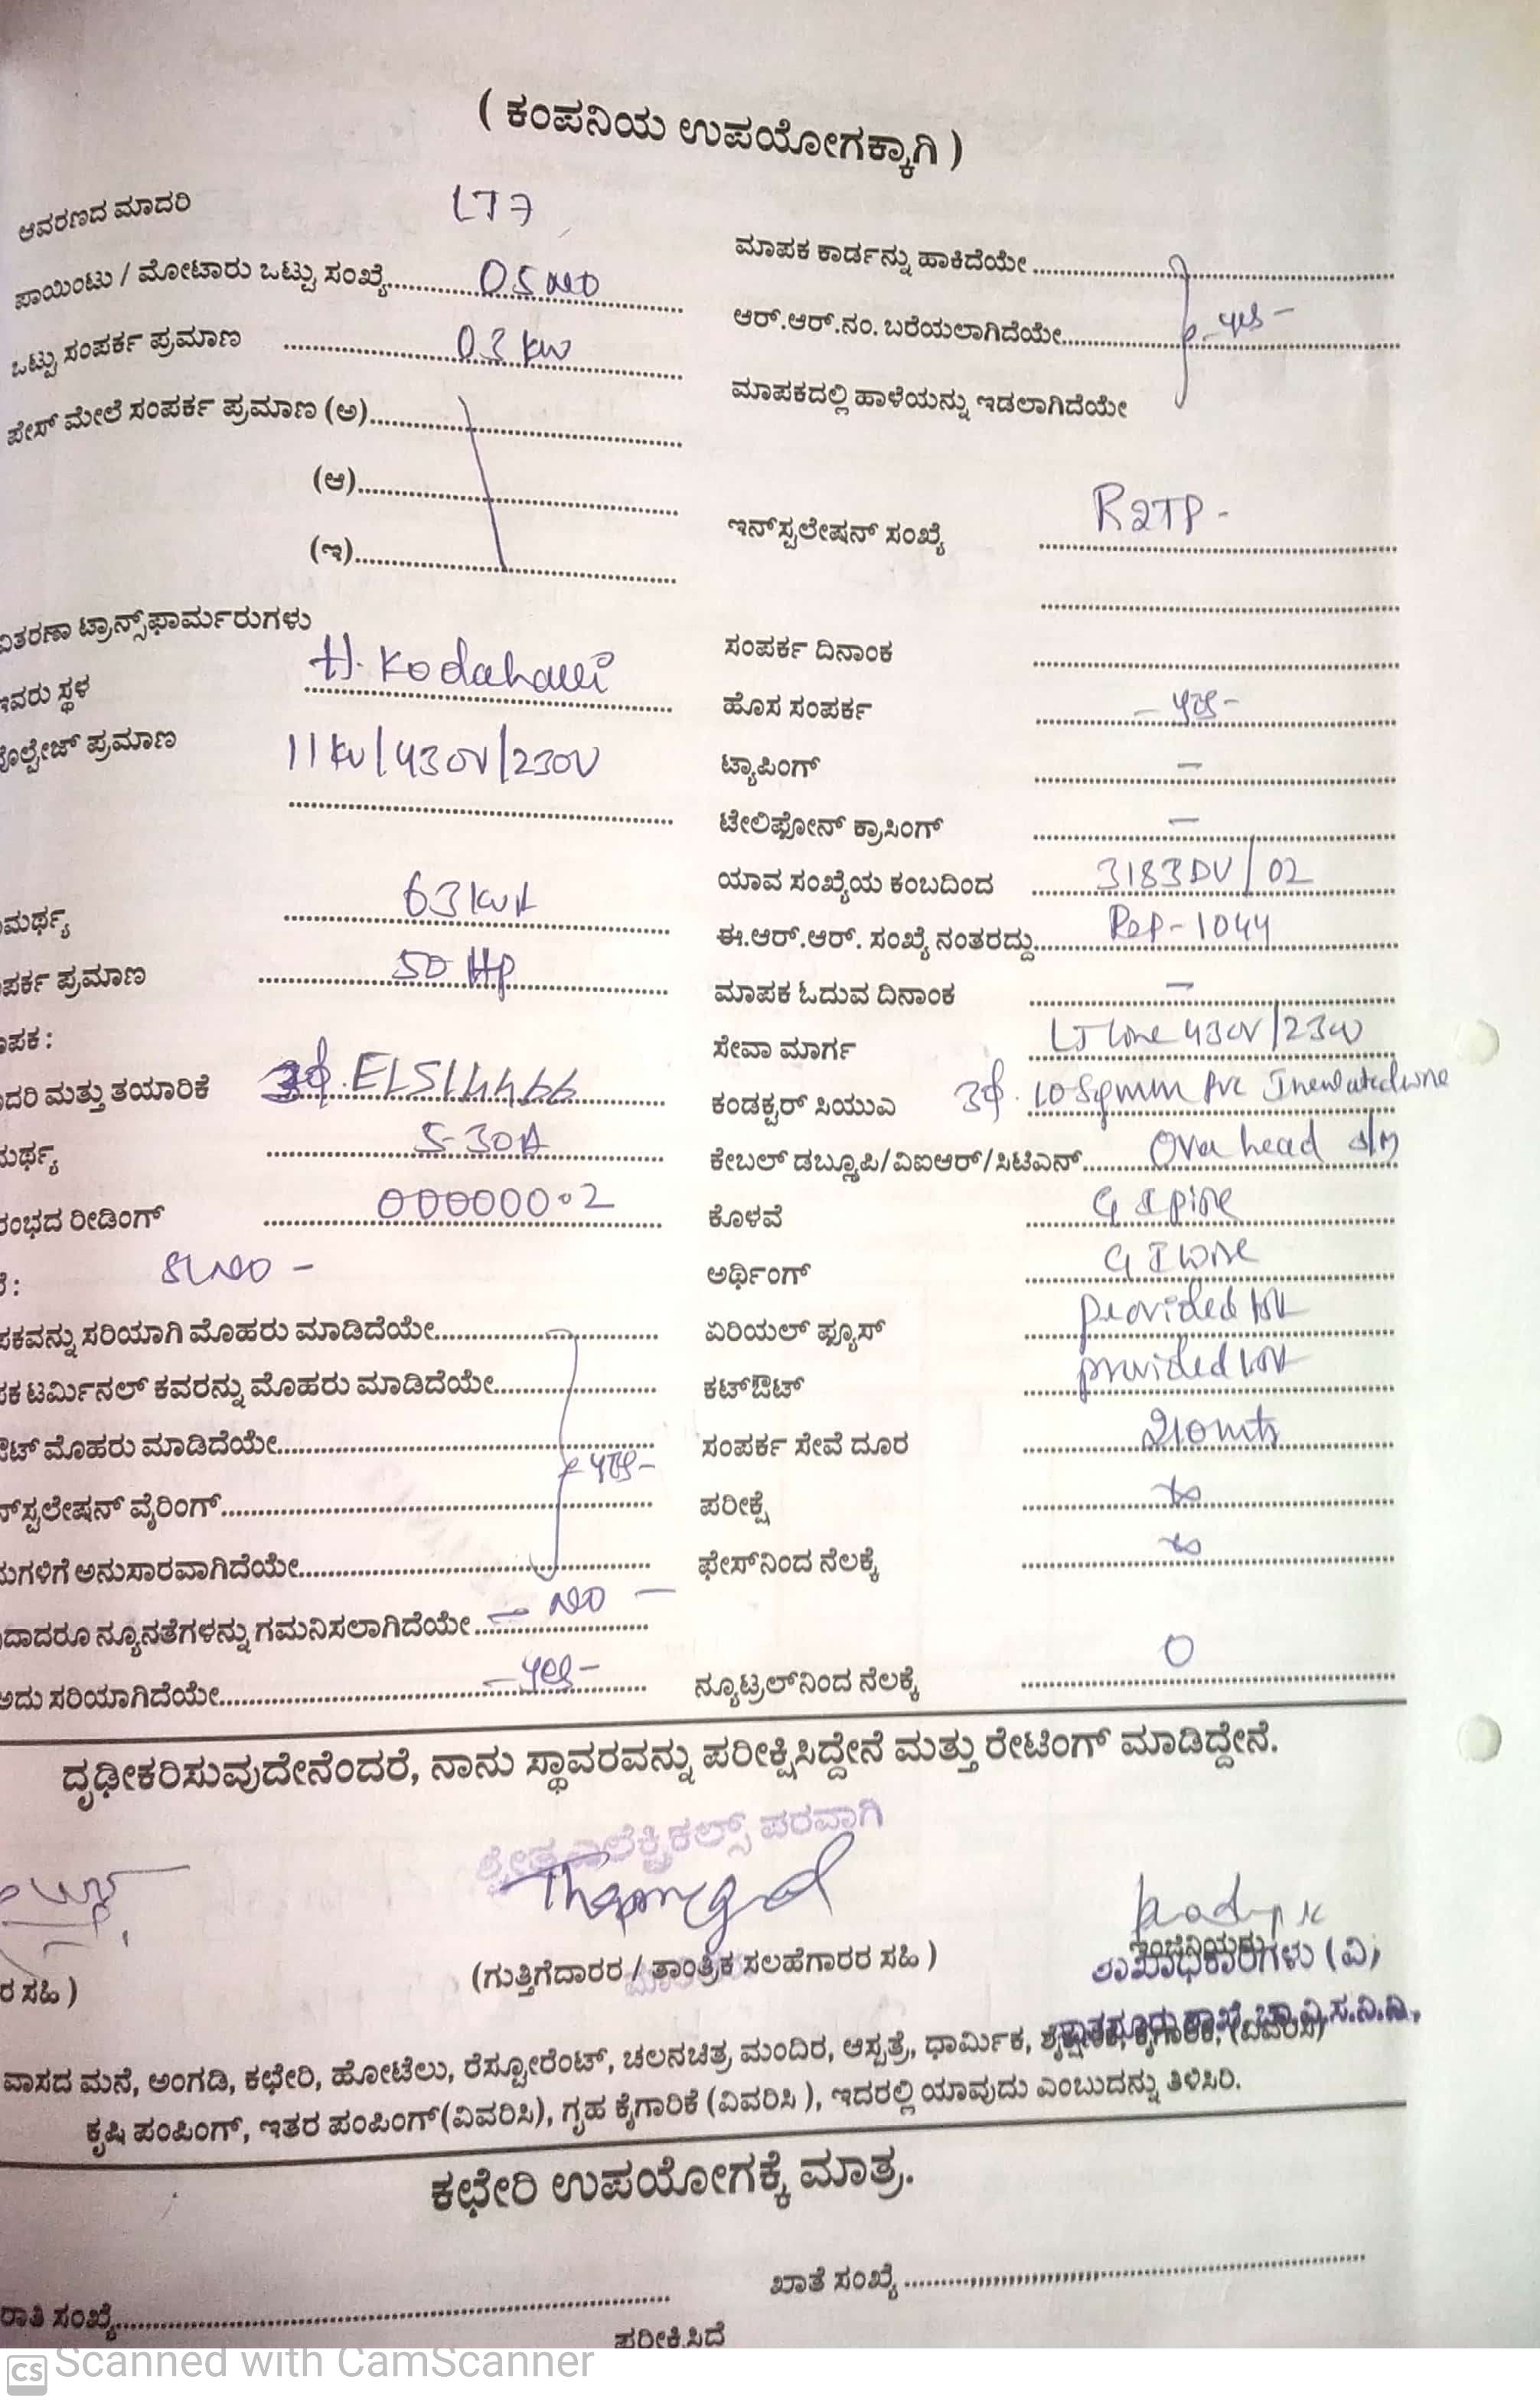 ( ಕಂಪನಿಯ ಉಪಯೋಗಕ್ಕಾಗಿ )
ಆವರಣದ ಮಾದರಿ LT7
ಪಾಯಿಂಟು / ಮೋಟಾರು ಒಟ್ಟು ಸಂಖ್ಯೆ 05 NO
ಒಟ್ಟು ಸಂಪರ್ಕ ಪ್ರಮಾಣ 03 KW
ಪೇಸ್ ಮೇಲೆ ಸಂಪರ್ಕ ಪ್ರಮಾಣ (ಅ)
(ಆ)
(ಇ)
ವಿತರಣಾ ಟ್ರಾನ್ಸ್‌ಫಾರ್ಮರುಗಳು
ಇವರು ಸ್ಥಳ H. Kodahalli
ವೋಲ್ಟೇಜ್ ಪ್ರಮಾಣ 11KV/430V/230V
ಮರ್ಥ್ಯ 63 KVA
ಪರ್ಕ ಪ್ರಮಾಣ 50 HP
ಾಪಕ :
ಾದರಿ ಮತ್ತು ತಯಾರಿಕೆ 3φ.
ಮರ್ಥ್ಯ 5-30A
ರಂಭದ ರೀಡಿಂಗ್ 000000.2
: SLNO -
ಪಕವನ್ನು ಸರಿಯಾಗಿ ಮೊಹರು ಮಾಡಿದೆಯೇ
ಪಕ ಟರ್ಮಿನಲ್ ಕವರನ್ನು ಮೊಹರು ಮಾಡಿದೆಯೇ
ಔಟ್ ಮೊಹರು ಮಾಡಿದೆಯೇ
- yes -
ನ್‌ಸ್ಟಲೇಷನ್ ವೈರಿಂಗ್
ಮಗಳಿಗೆ ಅನುಸಾರವಾಗಿದೆಯೇ
ದಾದರೂ ನ್ಯೂನತೆಗಳನ್ನು ಗಮನಿಸಲಾಗಿದೆಯೇ - NO -
ಅದು ಸರಿಯಾಗಿದೆಯೇ - yes -
ಮಾಪಕ ಕಾರ್ಡನ್ನು ಹಾಕಿದೆಯೇ
ಆರ್.ಆರ್.ನಂ. ಬರೆಯಲಾಗಿದೆಯೇ - yes -
ಮಾಪಕದಲ್ಲಿ ಹಾಳೆಯನ್ನು ಇಡಲಾಗಿದೆಯೇ
ಇನ್‌ಸ್ಟಲೇಷನ್ ಸಂಖ್ಯೆ R2TP -
ಸಂಪರ್ಕ ದಿನಾಂಕ
ಹೊಸ ಸಂಪರ್ಕ - yes -
ಟ್ಯಾಪಿಂಗ್ -
ಟೇಲಿಫೋನ್ ಕ್ರಾಸಿಂಗ್ -
ಯಾವ ಸಂಖ್ಯೆಯ ಕಂಬದಿಂದ 3183DV/02
ಈ.ಆರ್.ಆರ್. ಸಂಖ್ಯೆ ನಂತರದ್ದು R2P-1044
ಮಾಪಕ ಓದುವ ದಿನಾಂಕ -
ಸೇವಾ ಮಾರ್ಗ LT line 430V/230V
ಕಂಡಕ್ಟರ್ ಸಿಯುಎ 3φ. 10 Sqmm PVC Insulated wire
ಕೇಬಲ್ ಡಬ್ಲ್ಯೂಪಿ/ವಿಐಆರ್/ಸಿಟಿಎನ್ Over head S/M
ಕೊಳವೆ G I pipe
ಅರ್ಥಿಂಗ್ G I wire
ಏರಿಯಲ್ ಫ್ಯೂಸ್ provided
ಕಟ್‌ಔಟ್ provided
ಸಂಪರ್ಕ ಸೇವೆ ದೂರ 210 mts
ಪರೀಕ್ಷೆ ∞
ಫೇಸ್‌ನಿಂದ ನೆಲಕ್ಕೆ ∞
ನ್ಯೂಟ್ರಲ್‌ನಿಂದ ನೆಲಕ್ಕೆ 0
ದೃಢೀಕರಿಸುವುದೇನೆಂದರೆ, ನಾನು ಸ್ಥಾವರವನ್ನು ಪರೀಕ್ಷಿಸಿದ್ದೇನೆ ಮತ್ತು ರೇಟಿಂಗ್ ಮಾಡಿದ್ದೇನೆ.
ಎಲೆಕ್ಟ್ರಿಕಲ್ಸ್ ಪರವಾಗಿ
ರ ಸಹಿ )
(ಗುತ್ತಿಗೆದಾರರ / ತಾಂತ್ರಿಕ ಸಲಹೆಗಾರರ ಸಹಿ )
ಇಂಜಿನಿಯರು
ಶಾಖಾಧಿಕಾರಿಗಳು (ವಿ)
ಶಾಖೆ, ಚಾ.ವಿ.ಸ.ನಿ.ನಿ.,
ವಾಸದ ಮನೆ, ಅಂಗಡಿ, ಕಛೇರಿ, ಹೋಟೆಲು, ರೆಸ್ಟೋರೆಂಟ್, ಚಲನಚಿತ್ರ ಮಂದಿರ, ಆಸ್ಪತ್ರೆ, ಧಾರ್ಮಿಕ, ಶೈಕ್ಷಣಿಕ, ಕೈಗಾರಿಕೆ, (ವಿವರಿಸಿ)
ಕೃಷಿ ಪಂಪಿಂಗ್, ಇತರ ಪಂಪಿಂಗ್(ವಿವರಿಸಿ), ಗೃಹ ಕೈಗಾರಿಕೆ (ವಿವರಿಸಿ ), ಇದರಲ್ಲಿ ಯಾವುದು ಎಂಬುದನ್ನು ತಿಳಿಸಿರಿ.
ಕಛೇರಿ ಉಪಯೋಗಕ್ಕೆ ಮಾತ್ರ.
ಖಾತೆ ಸಂಖ್ಯೆ
ರಾತಿ ಸಂಖ್ಯೆ
ಪರೀಕ್ಷಿಸಿದೆ
CS Scanned with CamScanner